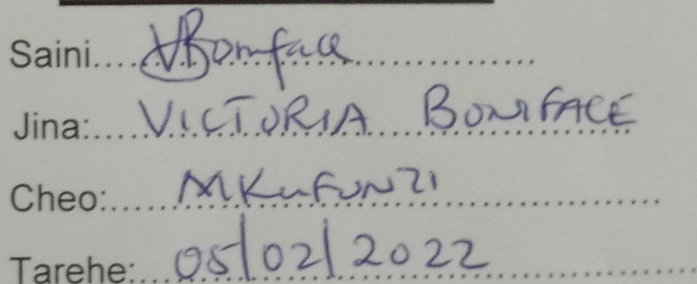 Saini....VBoniface...............
Jina:....VICTORIA BONIFACE
Cheo:......MKUFUNZI......................
Tarehe:...05/02/2022......................